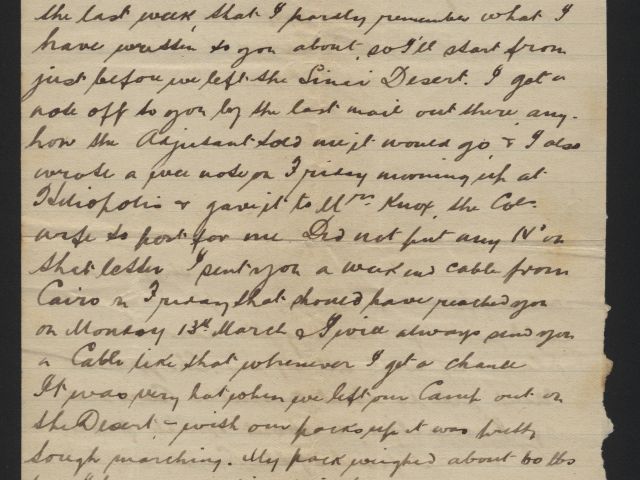 the last week that I hardly remember what I
have written to you about, so I'll start from
just before we left the Sinai Desert. I got a
note off to you by the last mail out there any-
how the Adjutant told me it would go & I also
wrote a wee note on Friday morning up at
Heliopolis & gave it to Mrs. Knox, the Cols
wife to post for me Did not put any No on
that letter I sent you a week end cable from
Cairo on Friday that should have reached you
on Monday 13th March & I will always send you
a Cable like that whenever I get a chance
It was very hot when we left our Camp out on
the Desert – with our packs up it was pretty
tough marching. My pack weighed about lbs